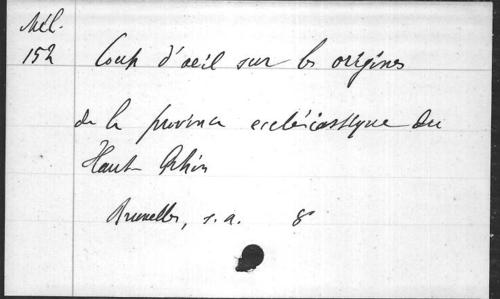 Mél.
152
Coup d'oeil sur les origines
de la province ecclésiastique du
Haut Rhin
Bruxelles, s. a. 8°